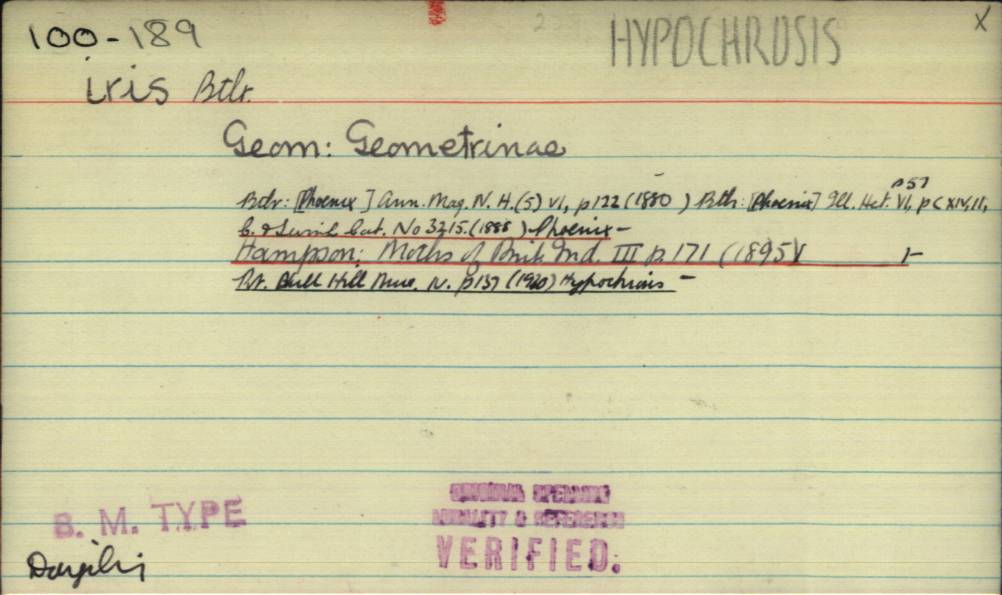 100-189
HYPOCHROSIS
X
iris Btlr.
Geom: Geometrinae
p57
Btlr: [Phoenix] Ann. Mag. N. H. (5) VI, p122 (1880) Btlr: [Phoenix] Ill. Het. VI, XIV, 11,
C. & Swinh Cat. No 3215. (1888) Phoenix -
Hampson: Moths of Brit. Ind. III p. 171 (1895)
Pr. Bull Hill Mus. IV. p137 (1920) Hypochrosis -
B. M. TYPE
ORIGINAL SPELLING
LOCALITY & REFERENCE
VERIFIED.